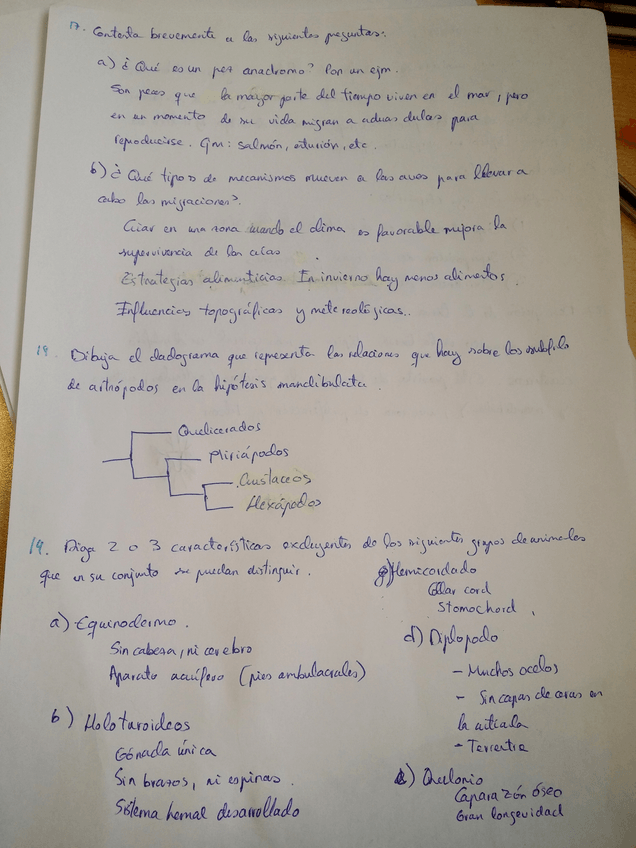 17. Contesta brevemente a las siguientes preguntas:
a) ¿Qué es un pez anadromo? Pon un ejm.
Son peces que la mayor parte del tiempo viven en el mar, pero
en un momento de su vida migran a aduas dulces para
reproducirse. Ejm: salmón, esturión, etc.
b) ¿Qué tipos de mecanismos mueven a las aves para llevar a
cabo las migraciones?
Criar en una zona cuando el clima es favorable mejora la
supervivencia de las crías
Estrategias alimenticias. En invierno hay menos alimentos.
Influencias topográficas y metereológicas.
18. Dibuja el cladograma que representa las relaciones que hay sobre los subfilo
de artrópodos en la hipótesis mandibulata.
Quelicerados
Miriápodos
Crustaceos
Hexápodos
19. Diga 2 o 3 características excluyentes de los siguientes grupos de animales
que en su conjunto se puedan distinguir.
a) Equinodermo.
Sin cabeza, ni cerebro
Aparato acuífero (pies ambulacrales)
b) Holoturoideos
Gónada única
Sin brazos, ni espinas.
Sistema hemal desarrollado
Hemicordado
Collar cord
Stomochord
d) Diplopodo
- Muchos ocelos
- Sin capas de ceras en
la cutícula
-
Quelonio
Caparazón óseo
Gran longevidad